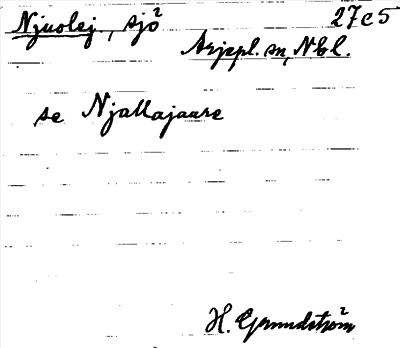 Njuolej., sjö 27e5
Arjepl. sn, Nbl.
se Njallajaure
H. Grundström